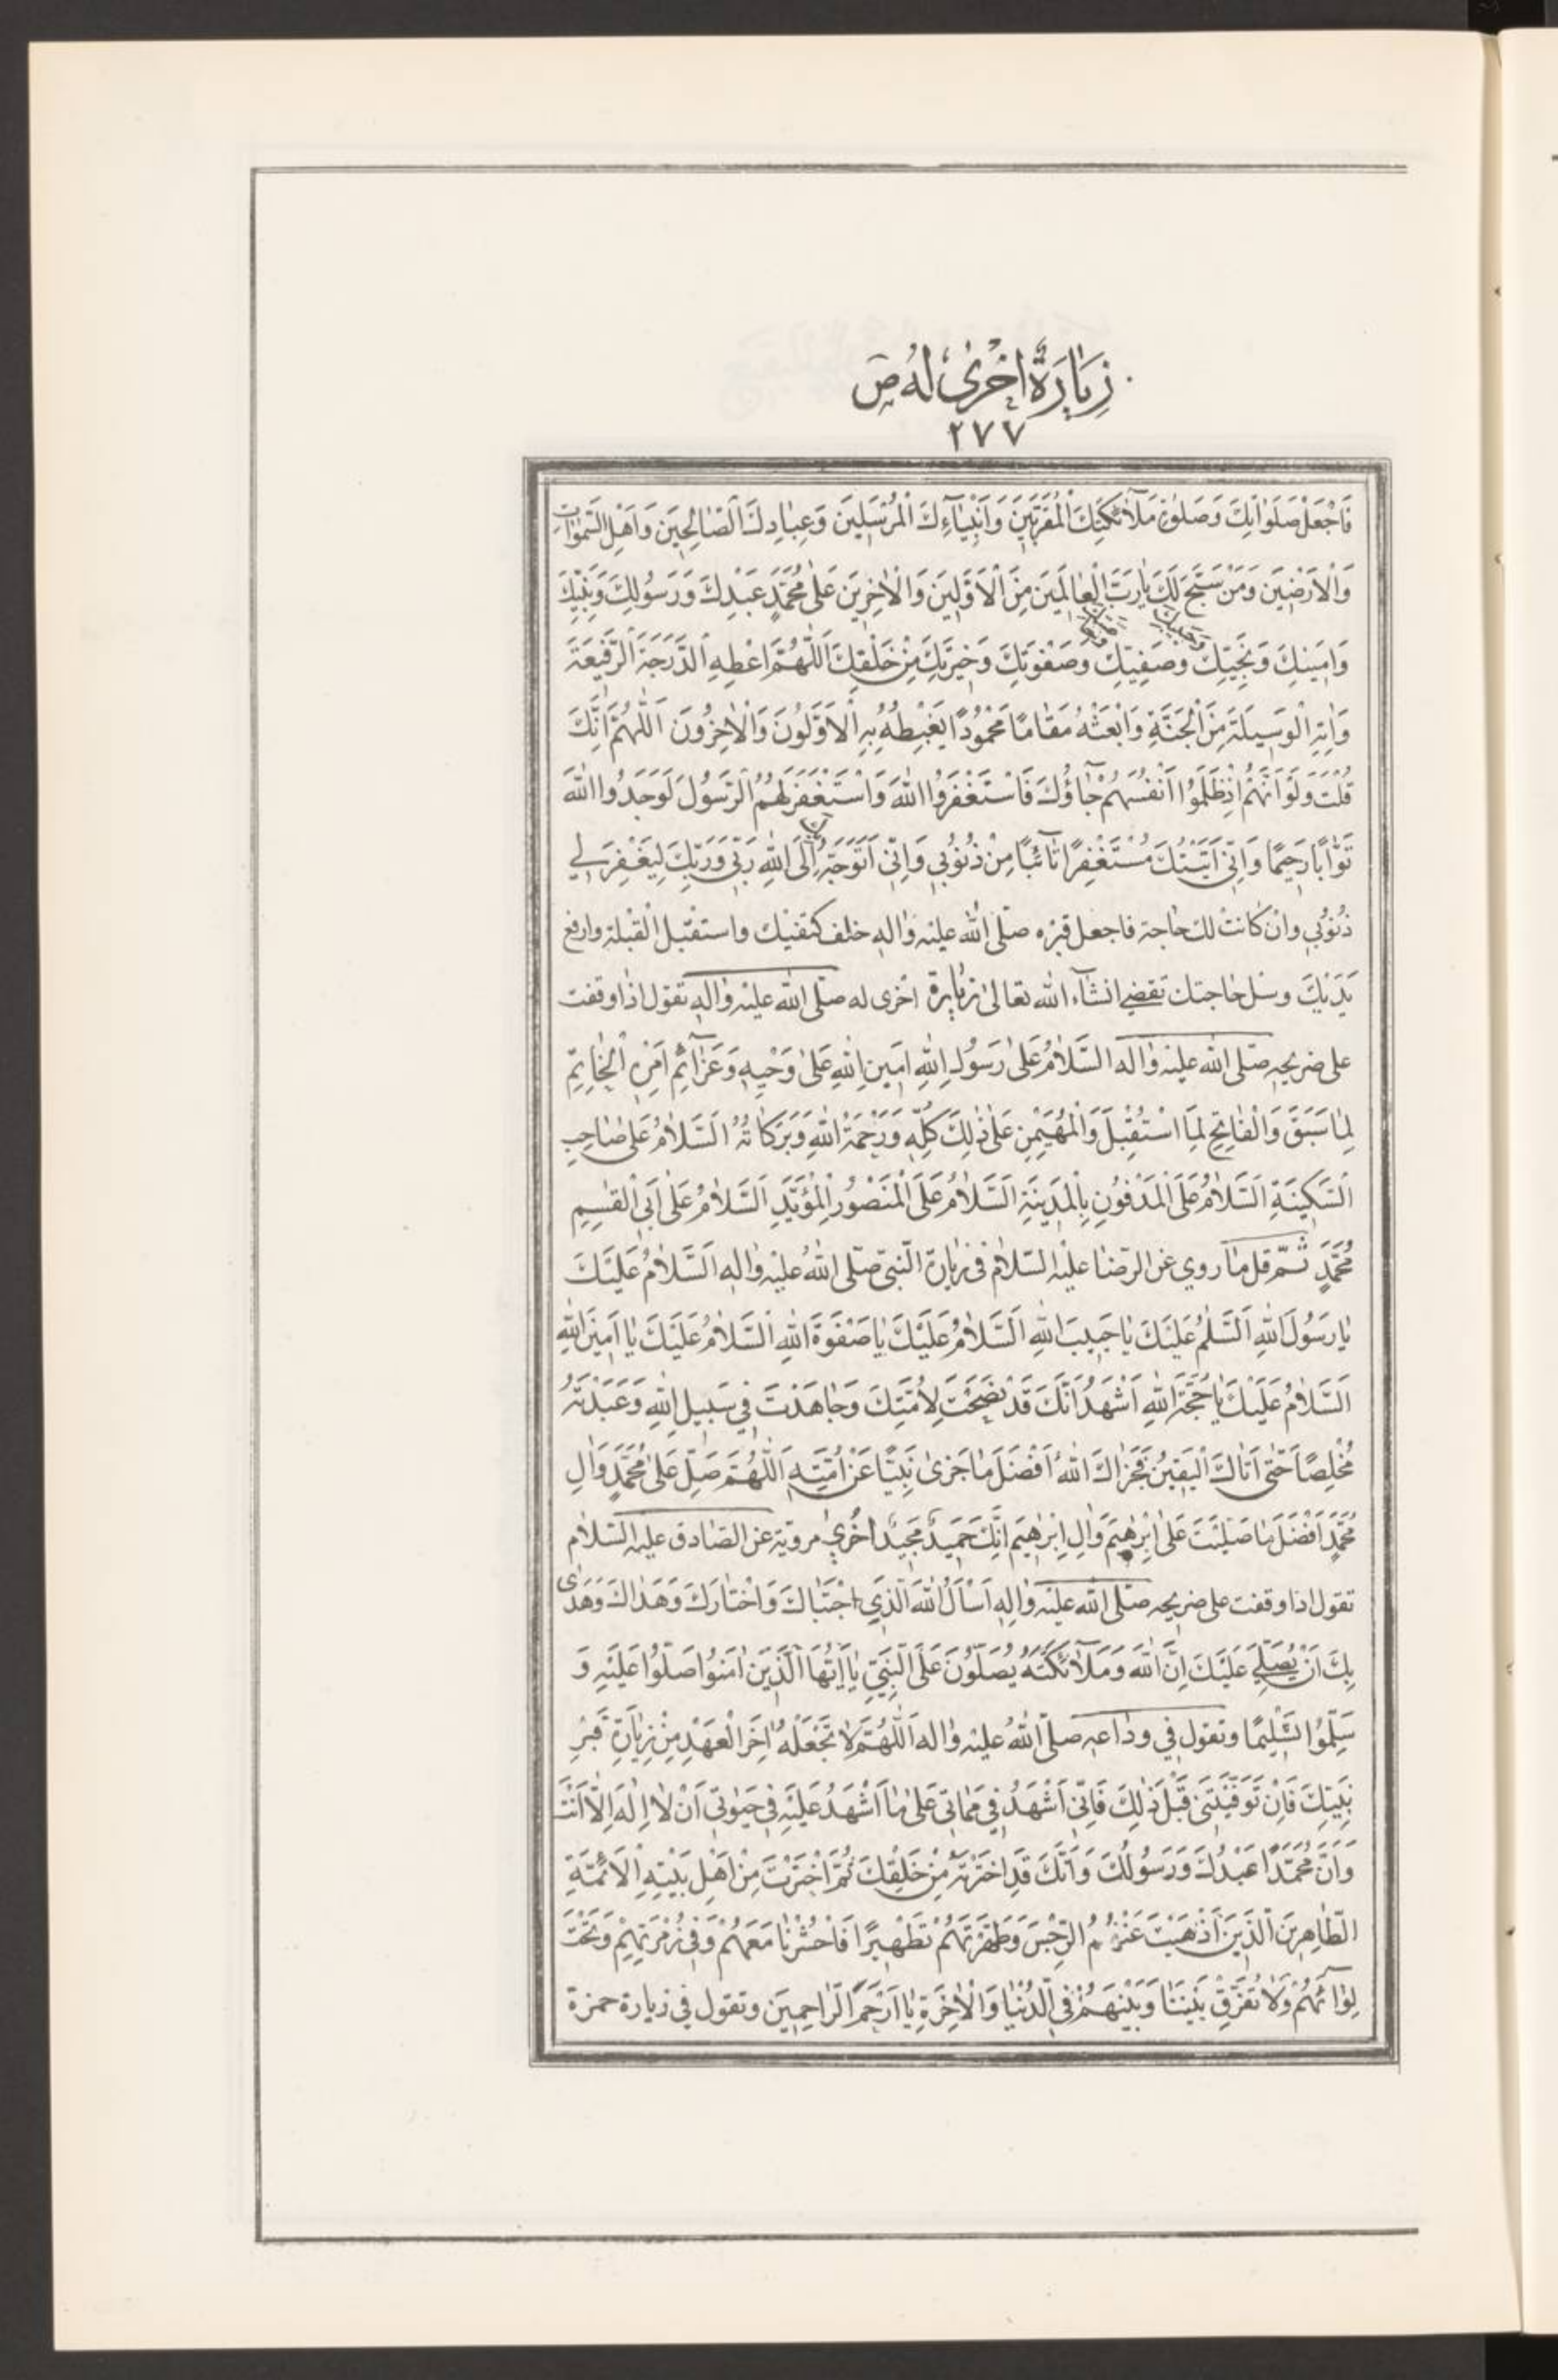 زِيٰارَةٌ اُخْرىٰ لَهُ ص
٢٧٧
فَاجْعَلْ صَلَوٰاتِكَ وَصَلَوٰةَ مَلآئِكَتِكَ الْمُقَرَّبِينَ وَاَنْبِيٰآءِكَ الْمُرْسَلِينَ وَعِبٰادِكَ الصّٰالِحِينَ وَاَهْلِ السَّمٰوٰاتِ
وَالْاَرَضِينَ وَمَنْ سَبَّحَ لَكَ يٰا رَبَّ الْعٰالَمِينَ مِنَ الْاَوَّلِينَ وَالْاٰخِرِينَ عَلىٰ مُحَمَّدٍ عَبْدِكَ وَرَسُولِكَ وَنَبِيِّكَ
وَحَبِيبِكَ
وَاَمِينِكَ وَنَجِيِّكَ وَصَفِيِّكَ وَصَفْوَتِكَ وَخِيَرَتِكَ مِنْ خَلْقِكَ اَللّٰهُمَّ اَعْطِهِ الدَّرَجَةَ الرَّفِيعَةَ
وَاٰتِهِ الْوَسِيلَةَ مِنَ الْجَنَّةِ وَابْعَثْهُ مَقٰامًا مَحْمُودًا يَغْبِطُهُ بِهِ الْاَوَّلُونَ وَالْاٰخِرُونَ اَللّٰهُمَّ اِنَّكَ
قُلْتَ وَلَوْ اَنَّهُمْ اِذْ ظَلَمُوا اَنْفُسَهُمْ جٰآؤُكَ فَاسْتَغْفَرُوا اللّٰهَ وَاسْتَغْفَرَ لَهُمُ الرَّسُولُ لَوَجَدُوا اللّٰهَ
تَوّٰابًا رَحِيمًا وَاِنِّي اَتَيْتُكَ مُسْتَغْفِرًا تٰآئِبًا مِنْ ذُنُوبِي وَاِنِّي اَتَوَجَّهُ اِلَى اللّٰهِ رَبِّي وَرَبِّكَ لِيَغْفِرَ لِي
ذُنُوبِي وان كانت لك حاجة فاجعل قبره صلّى اللّٰه عليه واله خلف كتفيك واستقبل القبلة وارفع
يَدَيْكَ وسل حاجتك تقضى انشآء اللّٰه تعالىٰ زيارة اخرى له صلّى اللّٰه عليه واله تقول اذا وقفت
على ضريحه صلّى اللّٰه عليه واله السَّلٰامُ عَلىٰ رَسُولِ اللّٰهِ اَمِينِ اللّٰهِ عَلىٰ وَحْيِهِ وَعَزٰآئِمِ اَمْرِهِ الْخٰاتِمِ
لِمٰا سَبَقَ وَالْفٰاتِحِ لِمَا اسْتُقْبِلَ وَالْمُهَيْمِنِ عَلىٰ ذٰلِكَ كُلِّهِ وَرَحْمَةُ اللّٰهِ وَبَرَكٰاتُهُ اَلسَّلٰامُ عَلىٰ صٰاحِبِ
السَّكِينَةِ اَلسَّلٰامُ عَلَى الْمَدْفُونِ بِالْمَدِينَةِ اَلسَّلٰامُ عَلَى الْمَنْصُورِ الْمُؤَيَّدِ اَلسَّلٰامُ عَلىٰ اَبِي الْقٰسِمِ
مُحَمَّدٍ ثمّ قل ما روي عن الرّضا عليه السّلام في زيارة النّبيّ صلّى اللّٰهُ عليه واله اَلسَّلٰامُ عَلَيْكَ
يٰا رَسُولَ اللّٰهِ اَلسَّلٰمُ عَلَيْكَ يٰا حَبِيبَ اللّٰهِ اَلسَّلٰامُ عَلَيْكَ يٰا صَفْوَةَ اللّٰهِ اَلسَّلٰامُ عَلَيْكَ يٰا اَمِينَ اللّٰهِ
اَلسَّلٰامُ عَلَيْكَ يٰا حُجَّةَ اللّٰهِ اَشْهَدُ اَنَّكَ قَدْ نَصَحْتَ لِاُمَّتِكَ وَجٰاهَدْتَ فِي سَبِيلِ اللّٰهِ وَعَبَدْتَهُ
مُخْلِصًا حَتّٰى اَتٰاكَ الْيَقِينُ فَجَزٰاكَ اللّٰهُ اَفْضَلَ مٰا جَزىٰ نَبِيًّا عَنْ اُمَّتِهِ اَللّٰهُمَّ صَلِّ عَلىٰ مُحَمَّدٍ وَاٰلِ
مُحَمَّدٍ اَفْضَلَ مٰا صَلَّيْتَ عَلىٰ اِبْرٰهِيمَ وَاٰلِ اِبْرٰهِيمَ اِنَّكَ حَمِيدٌ مَجِيدٌ اُخْرىٰ مرويّة عن الصّادق عليه السّلام
تقول اذا وقفت على ضريحه صلّى اللّٰه عليه واله اَسْاَلُ اللّٰهَ الَّذِي اجْتَبٰاكَ وَاخْتٰارَكَ وَهَدٰاكَ وَهَدىٰ
بِكَ اَنْ يُصَلِّيَ عَلَيْكَ اِنَّ اللّٰهَ وَمَلآئِكَتَهُ يُصَلُّونَ عَلَى النَّبِيِّ يٰا اَيُّهَا الَّذِينَ اٰمَنُوا صَلُّوا عَلَيْهِ وَ
سَلِّمُوا تَسْلِيمًا وتقول في وداعه صلّى اللّٰهُ عليه واله اَللّٰهُمَّ لٰا تَجْعَلْهُ اٰخِرَ الْعَهْدِ مِنْ زِيٰارَةِ قَبْرِ
نَبِيِّكَ فَاِنْ تَوَفَّيْتَنِي قَبْلَ ذٰلِكَ فَاِنِّي اَشْهَدُ فِي مَمٰاتِي عَلىٰ مٰا اَشْهَدُ عَلَيْهِ فِي حَيٰوتِي اَنْ لٰا اِلٰهَ اِلّٰا اَنْتَ
وَاَنَّ مُحَمَّدًا عَبْدُكَ وَرَسُولُكَ وَاَنَّكَ قَدِ اخْتَرْتَهُ مِنْ خَلْقِكَ ثُمَّ اخْتَرْتَ مِنْ اَهْلِ بَيْتِهِ الْاَئِمَّةِ
الطّٰاهِرِينَ الَّذِينَ اَذْهَبْتَ عَنْهُمُ الرِّجْسَ وَطَهَّرْتَهُمْ تَطْهِيرًا فَاحْشُرْنٰا مَعَهُمْ وَفِي زُمْرَتِهِمْ وَتَحْتَ
لِوٰائِهِمْ وَلٰا تُفَرِّقْ بَيْنَنٰا وَبَيْنَهُمْ فِي الدُّنْيٰا وَالْاٰخِرَةِ يٰا اَرْحَمَ الرّٰاحِمِينَ وتقول في زيارة حمزة